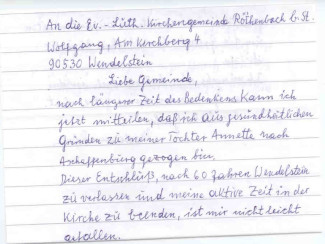 An die Ev.-Luth. Kirchengemeinde Röthenbach b. St.
Wolfgang, Am Kirchberg 4
90530 Wendelstein
Liebe Gemeinde,
nach längerer Zeit des Bedenkens kann ich
jetzt mitteilen, daß ich aus gesundheitlichen
Gründen zu meiner Tochter Annette nach
Aschaffenburg gezogen bin.
Dieser Entschluß, nach 60 Jahren Wendelstein
zu verlassen und meine aktive Zeit in der
Kirche zu beenden, ist mir nicht leicht
gefallen.